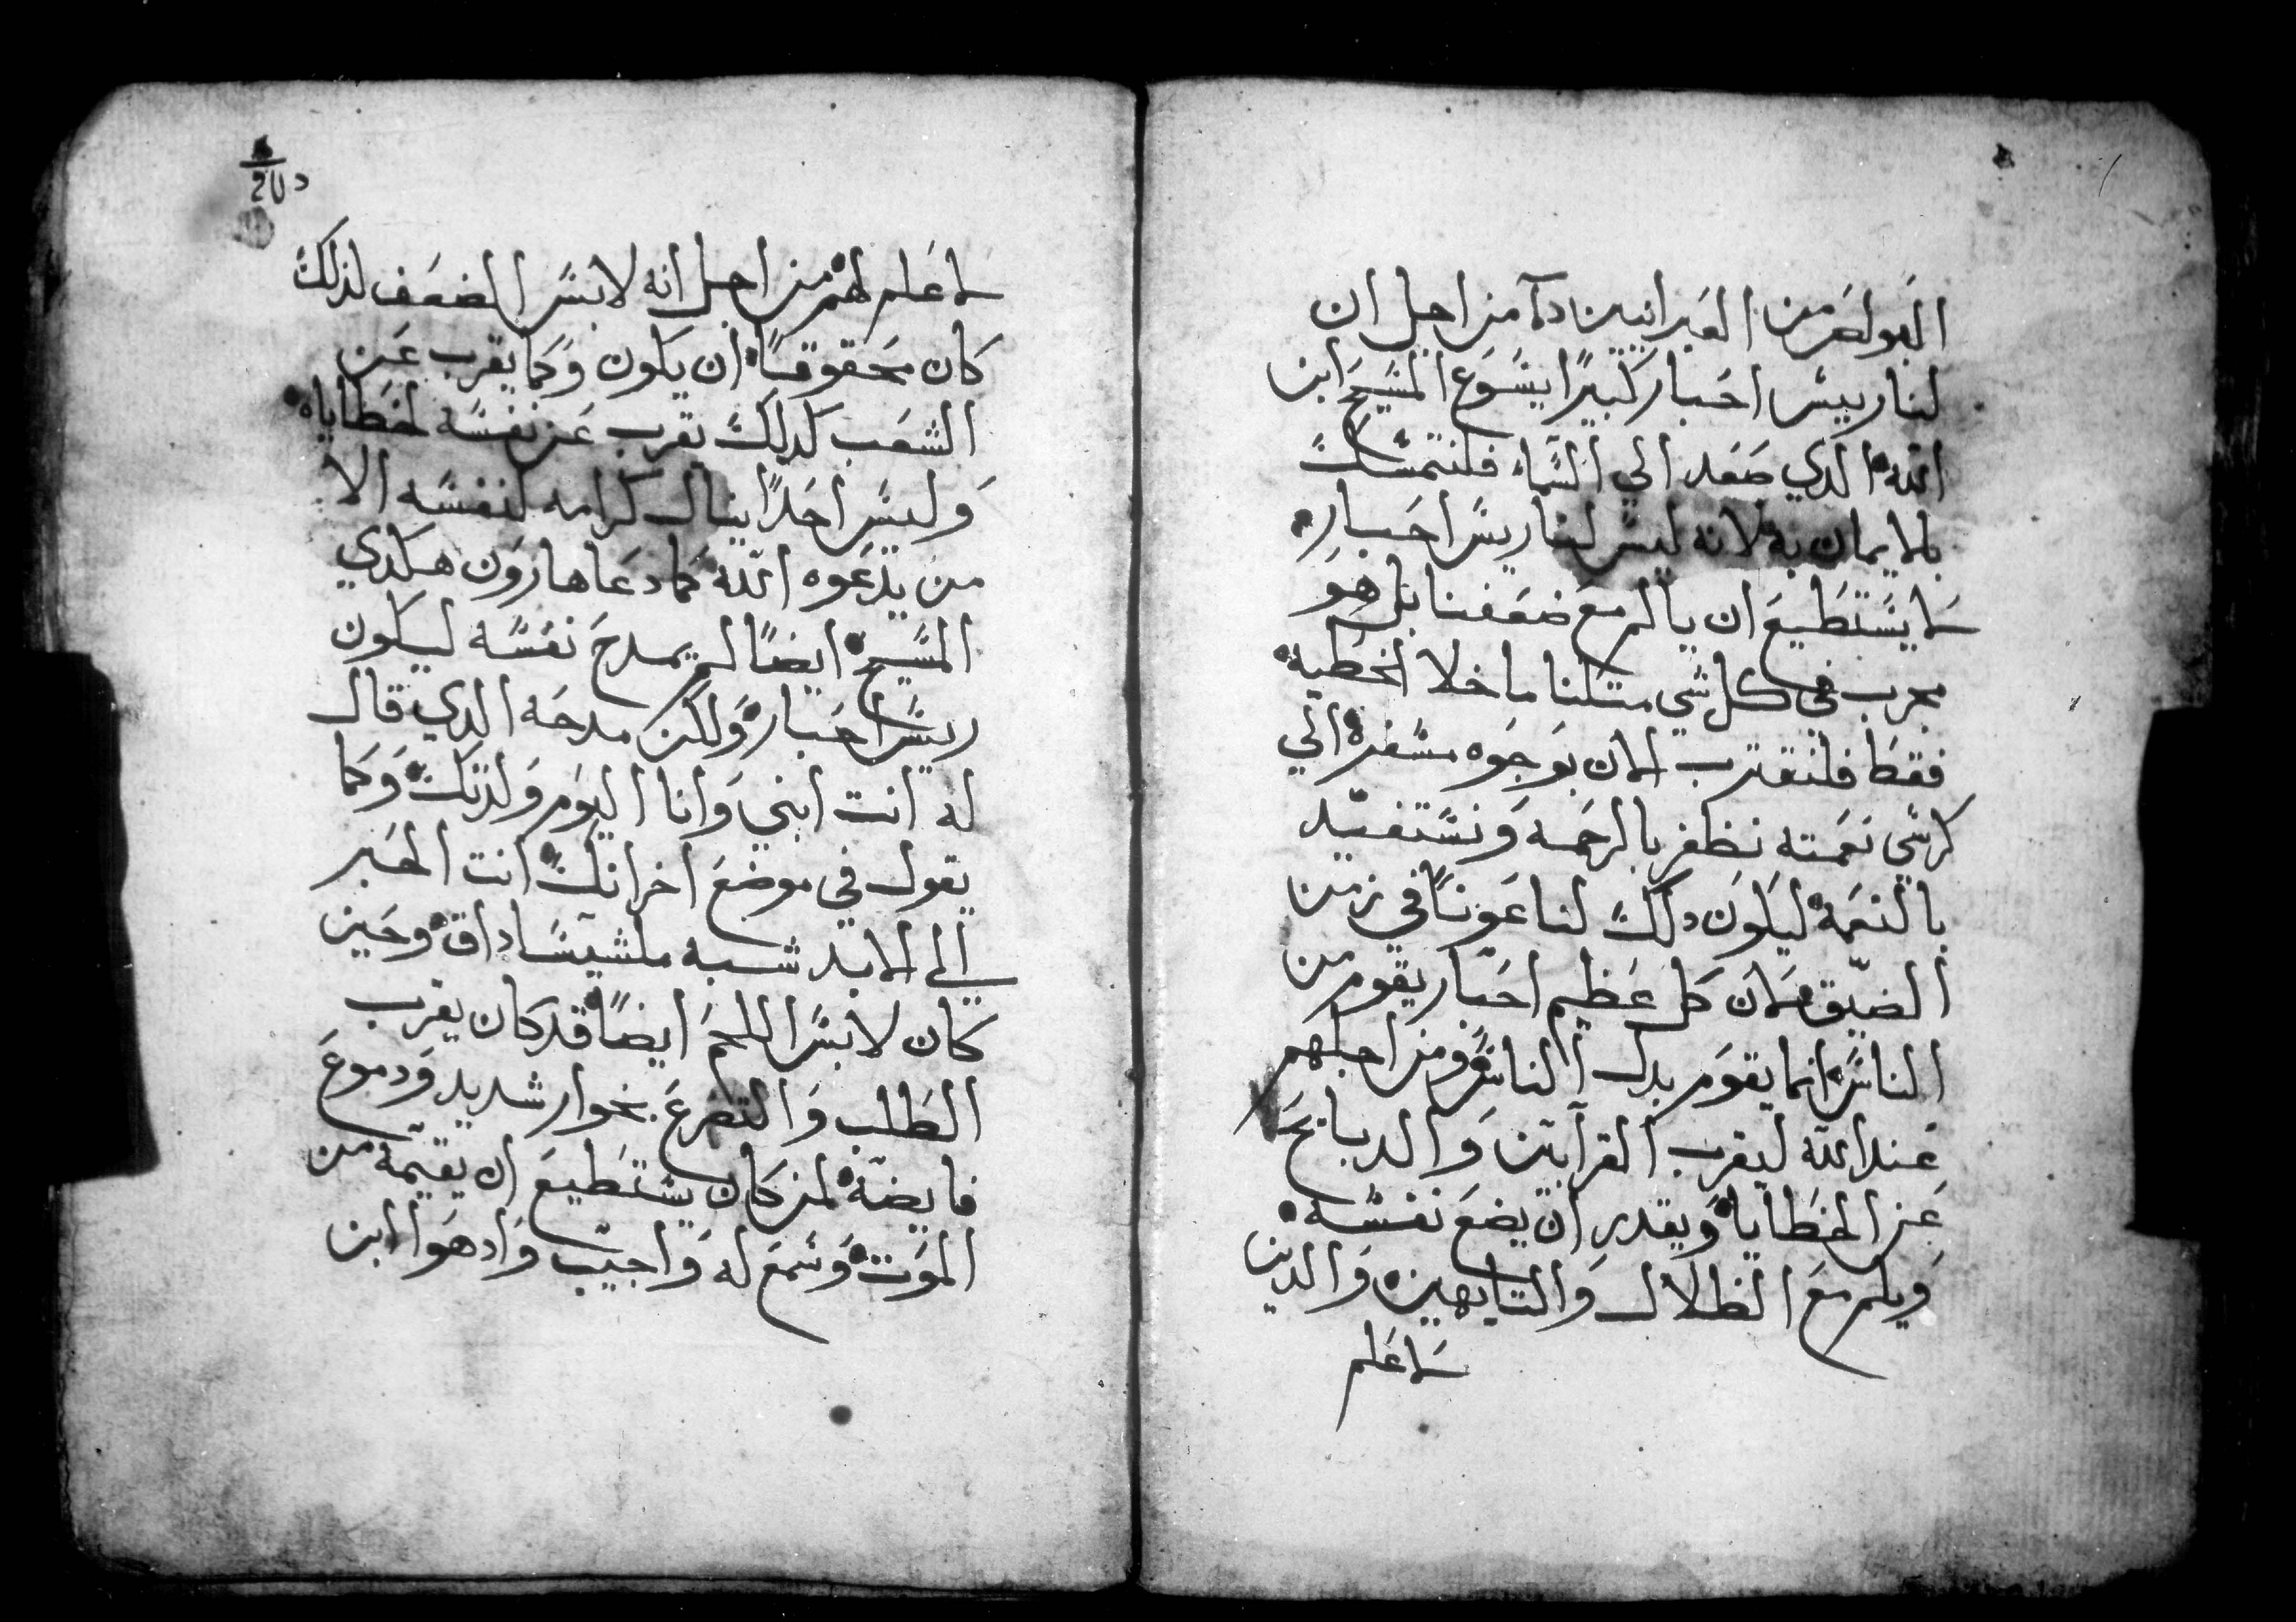 البولص من العبرانيين دآ من اجل ان
لنا رييس احبار كبيرًا يسوع المسيح ابن
الله الدي صعد الي السماء فلنتمسك
بالايمان به لانه ليس لنا ريس احبار
لا يستطيع ان يالم مع ضعفنا بل هو
مجرب في كل شي متلنا ما خلا الخطية
فقط فلنقترب الان بوجوه مسفرة الي
كرسي نعمته نظفر بالرحمه ونستفيد
بالنعمة ليكون دلك لنا عونًا في زمن
الضيق فان كل عظيم احبار يقوم من
الناس انما يقوم بدل الناس ومن اجلهم
عند الله ليقرب القرابين والدبايح
عن الخطايا ويقدر ان يضع نفسه
ويلم مع الظلال والتايهين والدين
لا علم
لا علم لهم من اجل انه لابس الضعف لذلك
كان محقوقًا ان يكون وكما يقرب عن
الشعب كدلك يقرب عن نفسه لخطاياه
وليس احدًا ينال كرامه لنفسه الا
من يدعوه الله كما دعا هارون هكدي
المسيح ايضًا لم يمدح نفسه ليكون
ريس احبار ولكن مدحه الدي قال
له انت ابني وانا اليوم ولدتك وكما
يقول في موضع اخر انك انت الحبر
الي الابد شبه ملشيساداق وحين
كان لابس اللحم ايضًا قد كان يقرب
الطلب والتضرع بخوار شديد ودموع
فايضة لمن كان يستطيع ان يقيمه من
الموت وسمع له واجيب واد هوا ابن